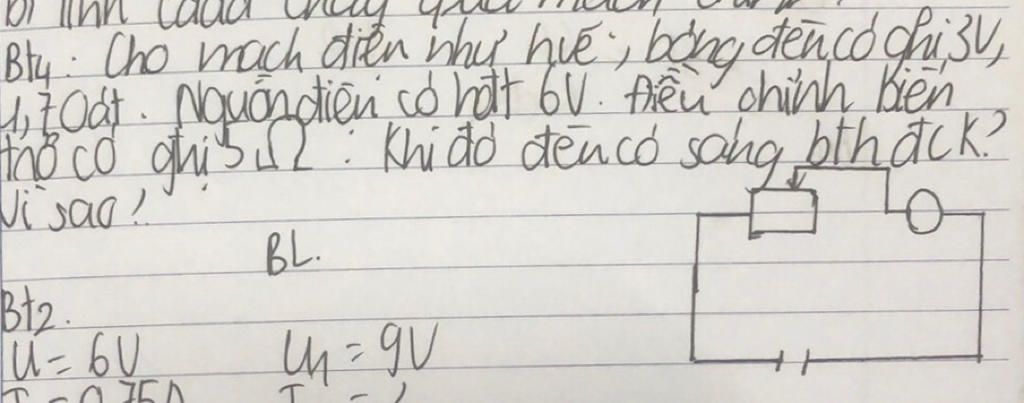 b) Tính
Bt4: Cho mạch điện như hvẽ, bóng đèn có ghi 3V,
1,7 Oát. Nguồn điện có hđt 6V. Điều chỉnh biến
trở có ghi 5Ω. Khi đó đèn có sáng bth đc k?
Vì sao?
BL.
Bt2.
U = 6V U1 = 9V